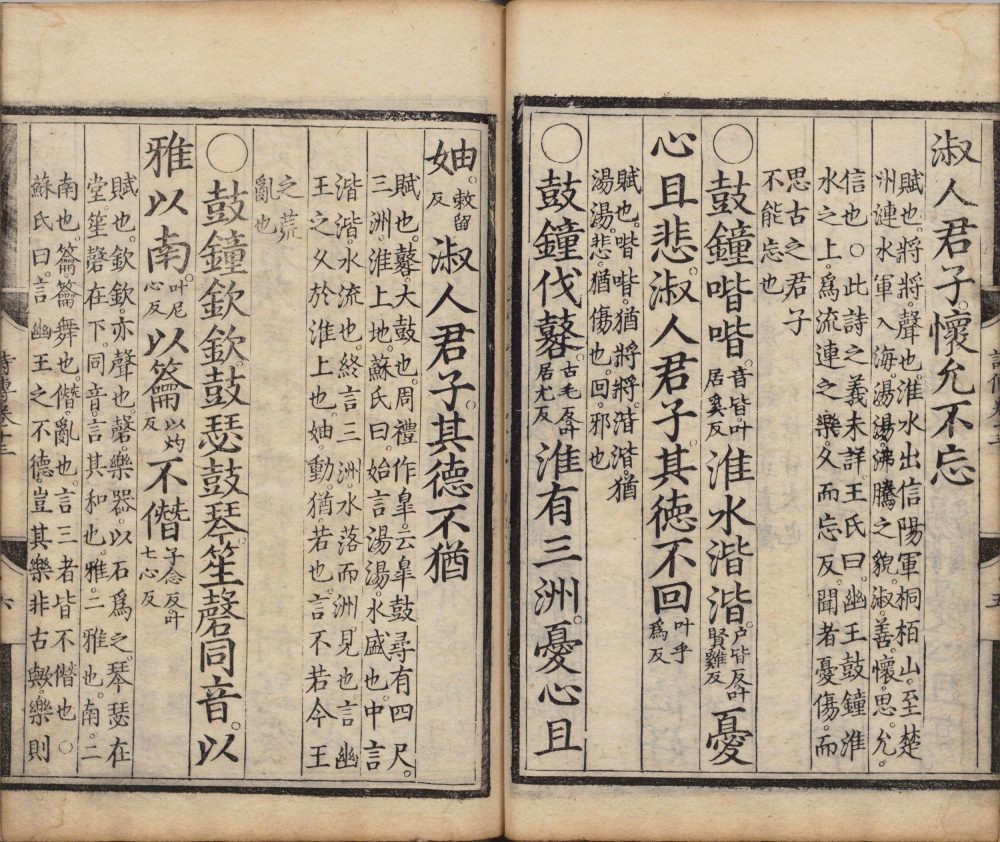 淑人君子。懷允不忘
賦也。將將。聲也。淮水出信陽軍桐栢山。至楚
州漣水軍入海。湯湯。沸騰之貌。淑。善。懷。思。允。
信也。○此詩之義未詳。王氏曰。幽王鼓鐘淮
水之上。爲流連之樂。久而忘反。聞者憂傷。而
思古之君子
不能忘也
○鼓鐘喈喈。音皆叶居奚反淮水湝湝。户皆反叶賢雞反憂
心且悲。淑人君子。其徳不回叶乎爲反
賦也。喈喈。猶將將。湝湝。猶
湯湯。悲。猶傷也。回。邪也
○鼓鐘伐鼛。古毛反叶居尤反淮有三洲。憂心且
妯。敕留反淑人君子。其德不猶
賦也。鼛。大鼓也。周禮作皐。云皐鼓尋有四尺。
三洲。淮上地。蘇氏曰。始言湯湯。水盛也。中言
湝湝。水流也。終言三洲。水落而洲見也。言幽
王之久於淮上也。妯。動。猶。若也。言不若今王
之荒
亂也
○鼓鐘欽欽。鼓瑟鼓琴。笙磬同音。以
雅以南。叶尼心反以籥以灼反不僭子念反叶七心反
賦也。欽欽。亦聲也。磬。樂器。以石爲之。琴瑟在
堂。笙磬在下。同音。言其和也。雅。二雅也。南。二
南也。籥。籥舞也。僭。亂也。言三者皆不僭也。○
蘇氏曰。言幽王之不德。豈其樂非古歟。樂則
詩傳卷十三
六